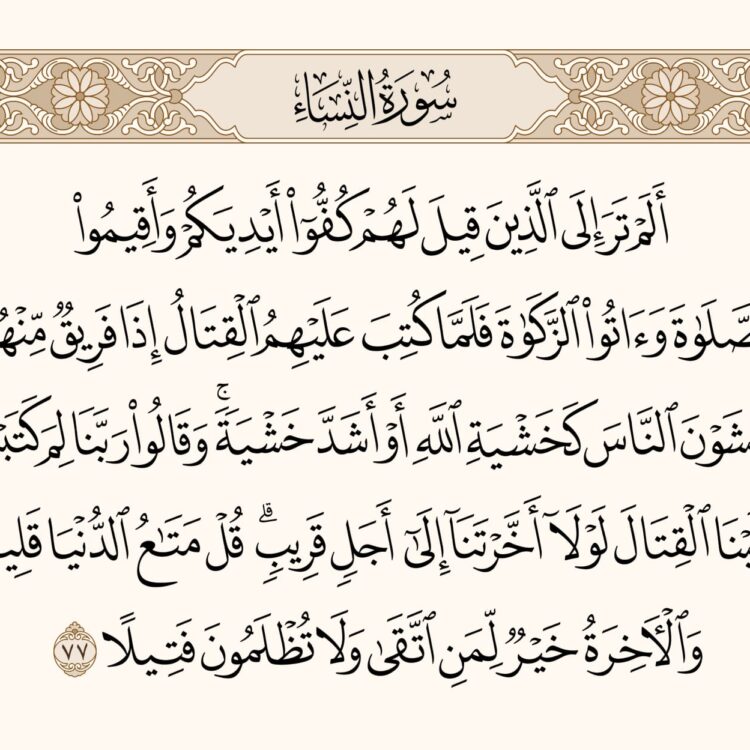 سُورَةُ النِّسَاءِ
أَلَمۡ تَرَ إِلَى ٱلَّذِينَ قِيلَ لَهُمۡ كُفُّوٓاْ أَيۡدِيَكُمۡ وَأَقِيمُواْ
صَّلَوٰةَ وَءَاتُواْ ٱلزَّكَوٰةَ فَلَمَّا كُتِبَ عَلَيۡهِمُ ٱلۡقِتَالُ إِذَا فَرِيقٞ مِّنۡهُ
شَوۡنَ ٱلنَّاسَ كَخَشۡيَةِ ٱللَّهِ أَوۡ أَشَدَّ خَشۡيَةٗۚ وَقَالُواْ رَبَّنَا لِمَ كَتَبۡ
يۡنَا ٱلۡقِتَالَ لَوۡلَآ أَخَّرۡتَنَآ إِلَىٰٓ أَجَلٖ قَرِيبٖۗ قُلۡ مَتَٰعُ ٱلدُّنۡيَا قَلِي
وَٱلۡأٓخِرَةُ خَيۡرٞ لِّمَنِ ٱتَّقَىٰ وَلَا تُظۡلَمُونَ فَتِيلًا ٧٧